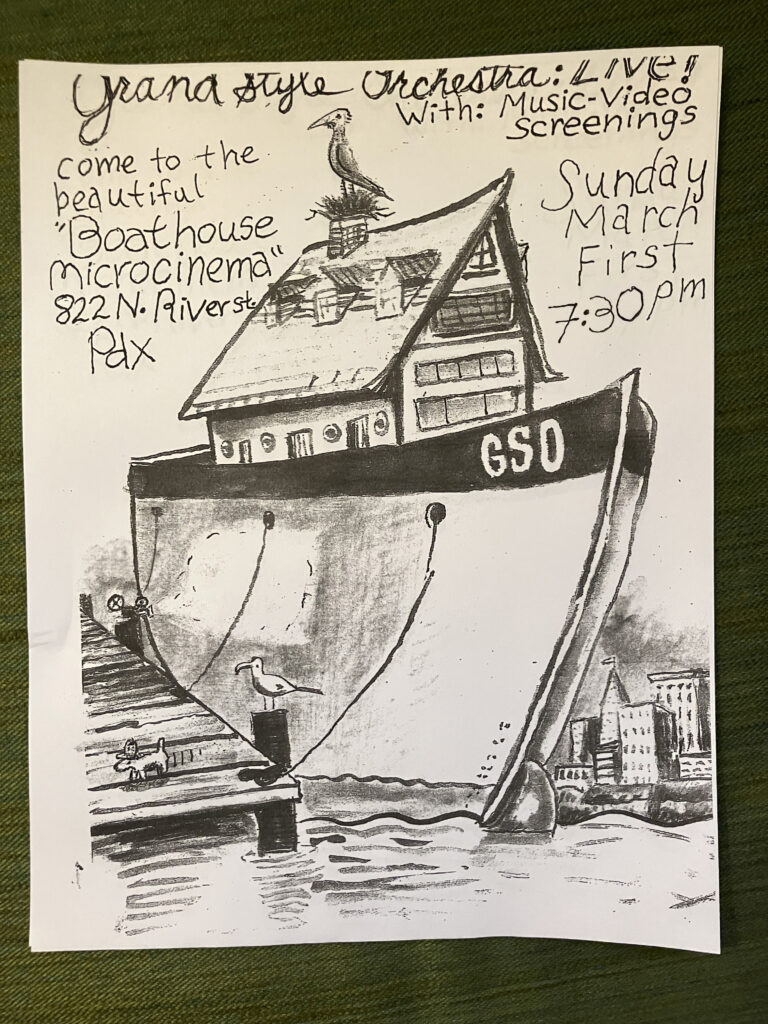 Grand Style Orchestra: LIVE!
With: Music-Video
Screenings
come to the
beautiful
"Boathouse
microcinema"
822 N. River st.
Pdx
Sunday
March
First
7:30pm
GSO